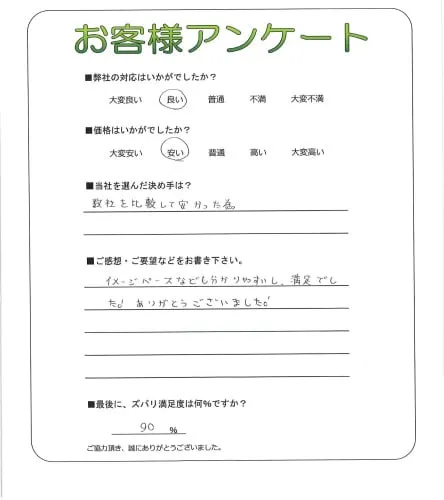 お客様アンケート
■弊社の対応はいかがでしたか？
大変良い 良い 普通 不満 大変不満
■価格はいかがでしたか？
大変安い 安い 普通 高い 大変高い
■当社を選んだ決め手は？
数社を比較して安かった為。
■ご感想・ご要望などをお書き下さい。
イメージベースなども分かりやすいし、満足でし
た。ありがとうございました。
■最後に、ズバリ満足度は何%ですか？
90 %
ご協力頂き、誠にありがとうございました。